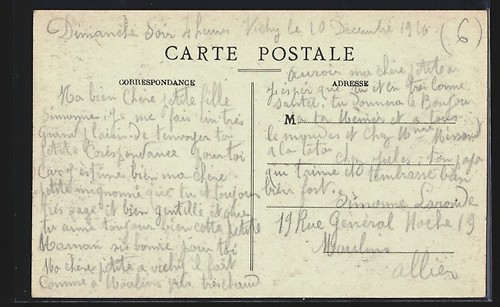 Dimanche Soir 4 heures Vichy le 10 Decembre 1916
(6)
CARTE POSTALE
CORRESPONDANCE
ADRESSE
Ma bien Chère petite fille
Simonne Je me fais un très
Grand plaisir de t'envoyer toi
petite Corespondance pour toi
Car J'estime bien ma chère
petite mignonne que tu et toujours
très sage et bien gentille et que
tu aime toujour bien cette petite
Maman si bonne pour toi
Ma chère petite a vichy il fait
Comme a Moulins pas très chaud
auroir ma chère petite
J'espèr que tu et en très bonne
santée, tu donnera le Bonjour
M
a ta Mémère et a tous
le mondes et Chez Mme
a la
Chez Jules, Ton papa
qui t'aime et t'embrasse bien
bien fort.
Simonne
19 Rue Général Hoche 19
Moulins
allier